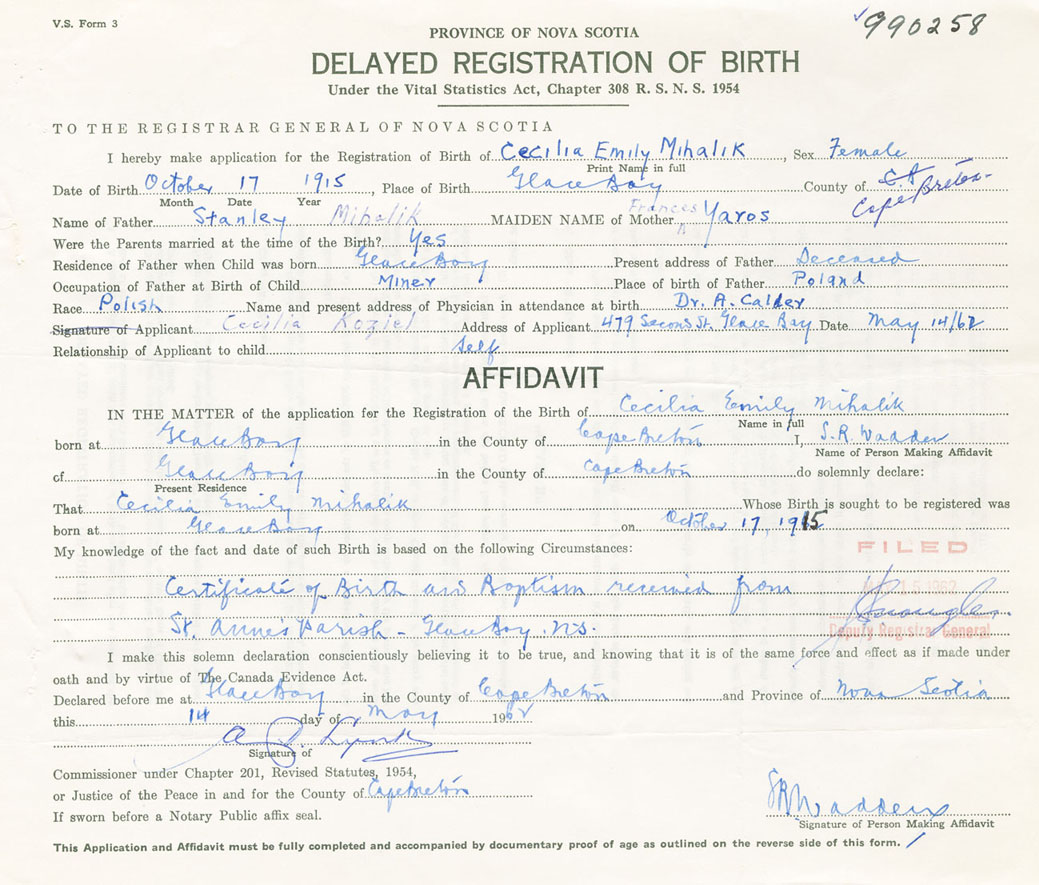 V.S. Form 3
990258
PROVINCE OF NOVA SCOTIA
DELAYED REGISTRATION OF BIRTH
Under the Vital Statistics Act, Chapter 308 R. S. N. S. 1954
TO THE REGISTRAR GENERAL OF NOVA SCOTIA
I hereby make application for the Registration of Birth of Cecilia Emily Mihalik, Sex Female
Print Name in full
Date of Birth October 17 1915, Place of Birth Glace Bay County of C.B Cape Breton
Month Date Year
Name of Father Stanley Mihalik MAIDEN NAME of Mother Frances Yaros
Were the Parents married at the time of the Birth? Yes
Residence of Father when Child was born Glace Bay Present address of Father Deceased
Occupation of Father at Birth of Child Miner Place of birth of Father Poland
Race Polish Name and present address of Physician in attendance at birth Dr. A. Calder
Signature of Applicant Cecilia Koziel Address of Applicant 479 Second St. Glace Bay Date May 14/62
Relationship of Applicant to child Self
AFFIDAVIT
IN THE MATTER of the application for the Registration of the Birth of Cecilia Emily Mihalik
Name in full
born at Glace Bay in the County of Cape Breton I, S.R. Wadden
Name of Person Making Affidavit
of Glace Bay in the County of Cape Breton do solemnly declare:
Present Residence
That Cecilia Emily Mihalik Whose Birth is sought to be registered was
born at Glace Bay on October 17, 1915
My knowledge of the fact and date of such Birth is based on the following Circumstances:
FILED
Certificate of Birth and Baptism received from
St. Anne's Parish - Glace Bay. N.S.
Deputy Registrar General
I make this solemn declaration conscientiously believing it to be true, and knowing that it is of the same force and effect as if made under
oath and by virtue of The Canada Evidence Act.
Declared before me at Glace Bay in the County of Cape Breton and Province of Nova Scotia
this 14 day of May 1962
Signature of
Commissioner under Chapter 201, Revised Statutes, 1954,
or Justice of the Peace in and for the County of Cape Breton
If sworn before a Notary Public affix seal.
SR Wadden
Signature of Person Making Affidavit
This Application and Affidavit must be fully completed and accompanied by documentary proof of age as outlined on the reverse side of this form.